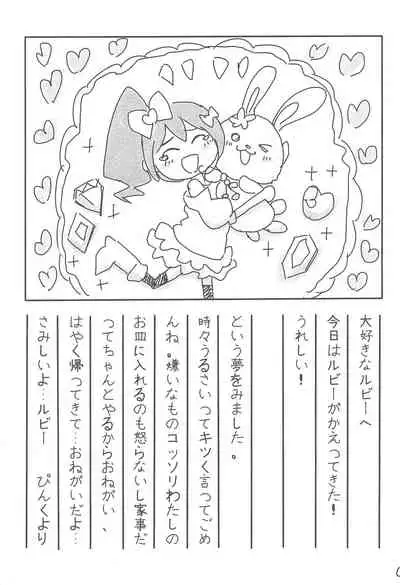 大好きなルビーへ
今日はルビーがかえってきた！
うれしい！
という夢をみました。
時々うるさいってキツく言ってごめ
んね。嫌いなものコッソリわたしの
お皿に入れるのも怒らないし家事だ
ってちゃんとやるからおねがい、
はやく帰ってきて…おねがいだよ…
さみしいよ…ルビー　ぴんくより